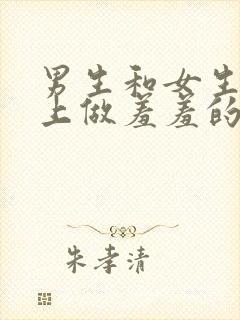 男生和女生
上做羞羞的
朱孝清